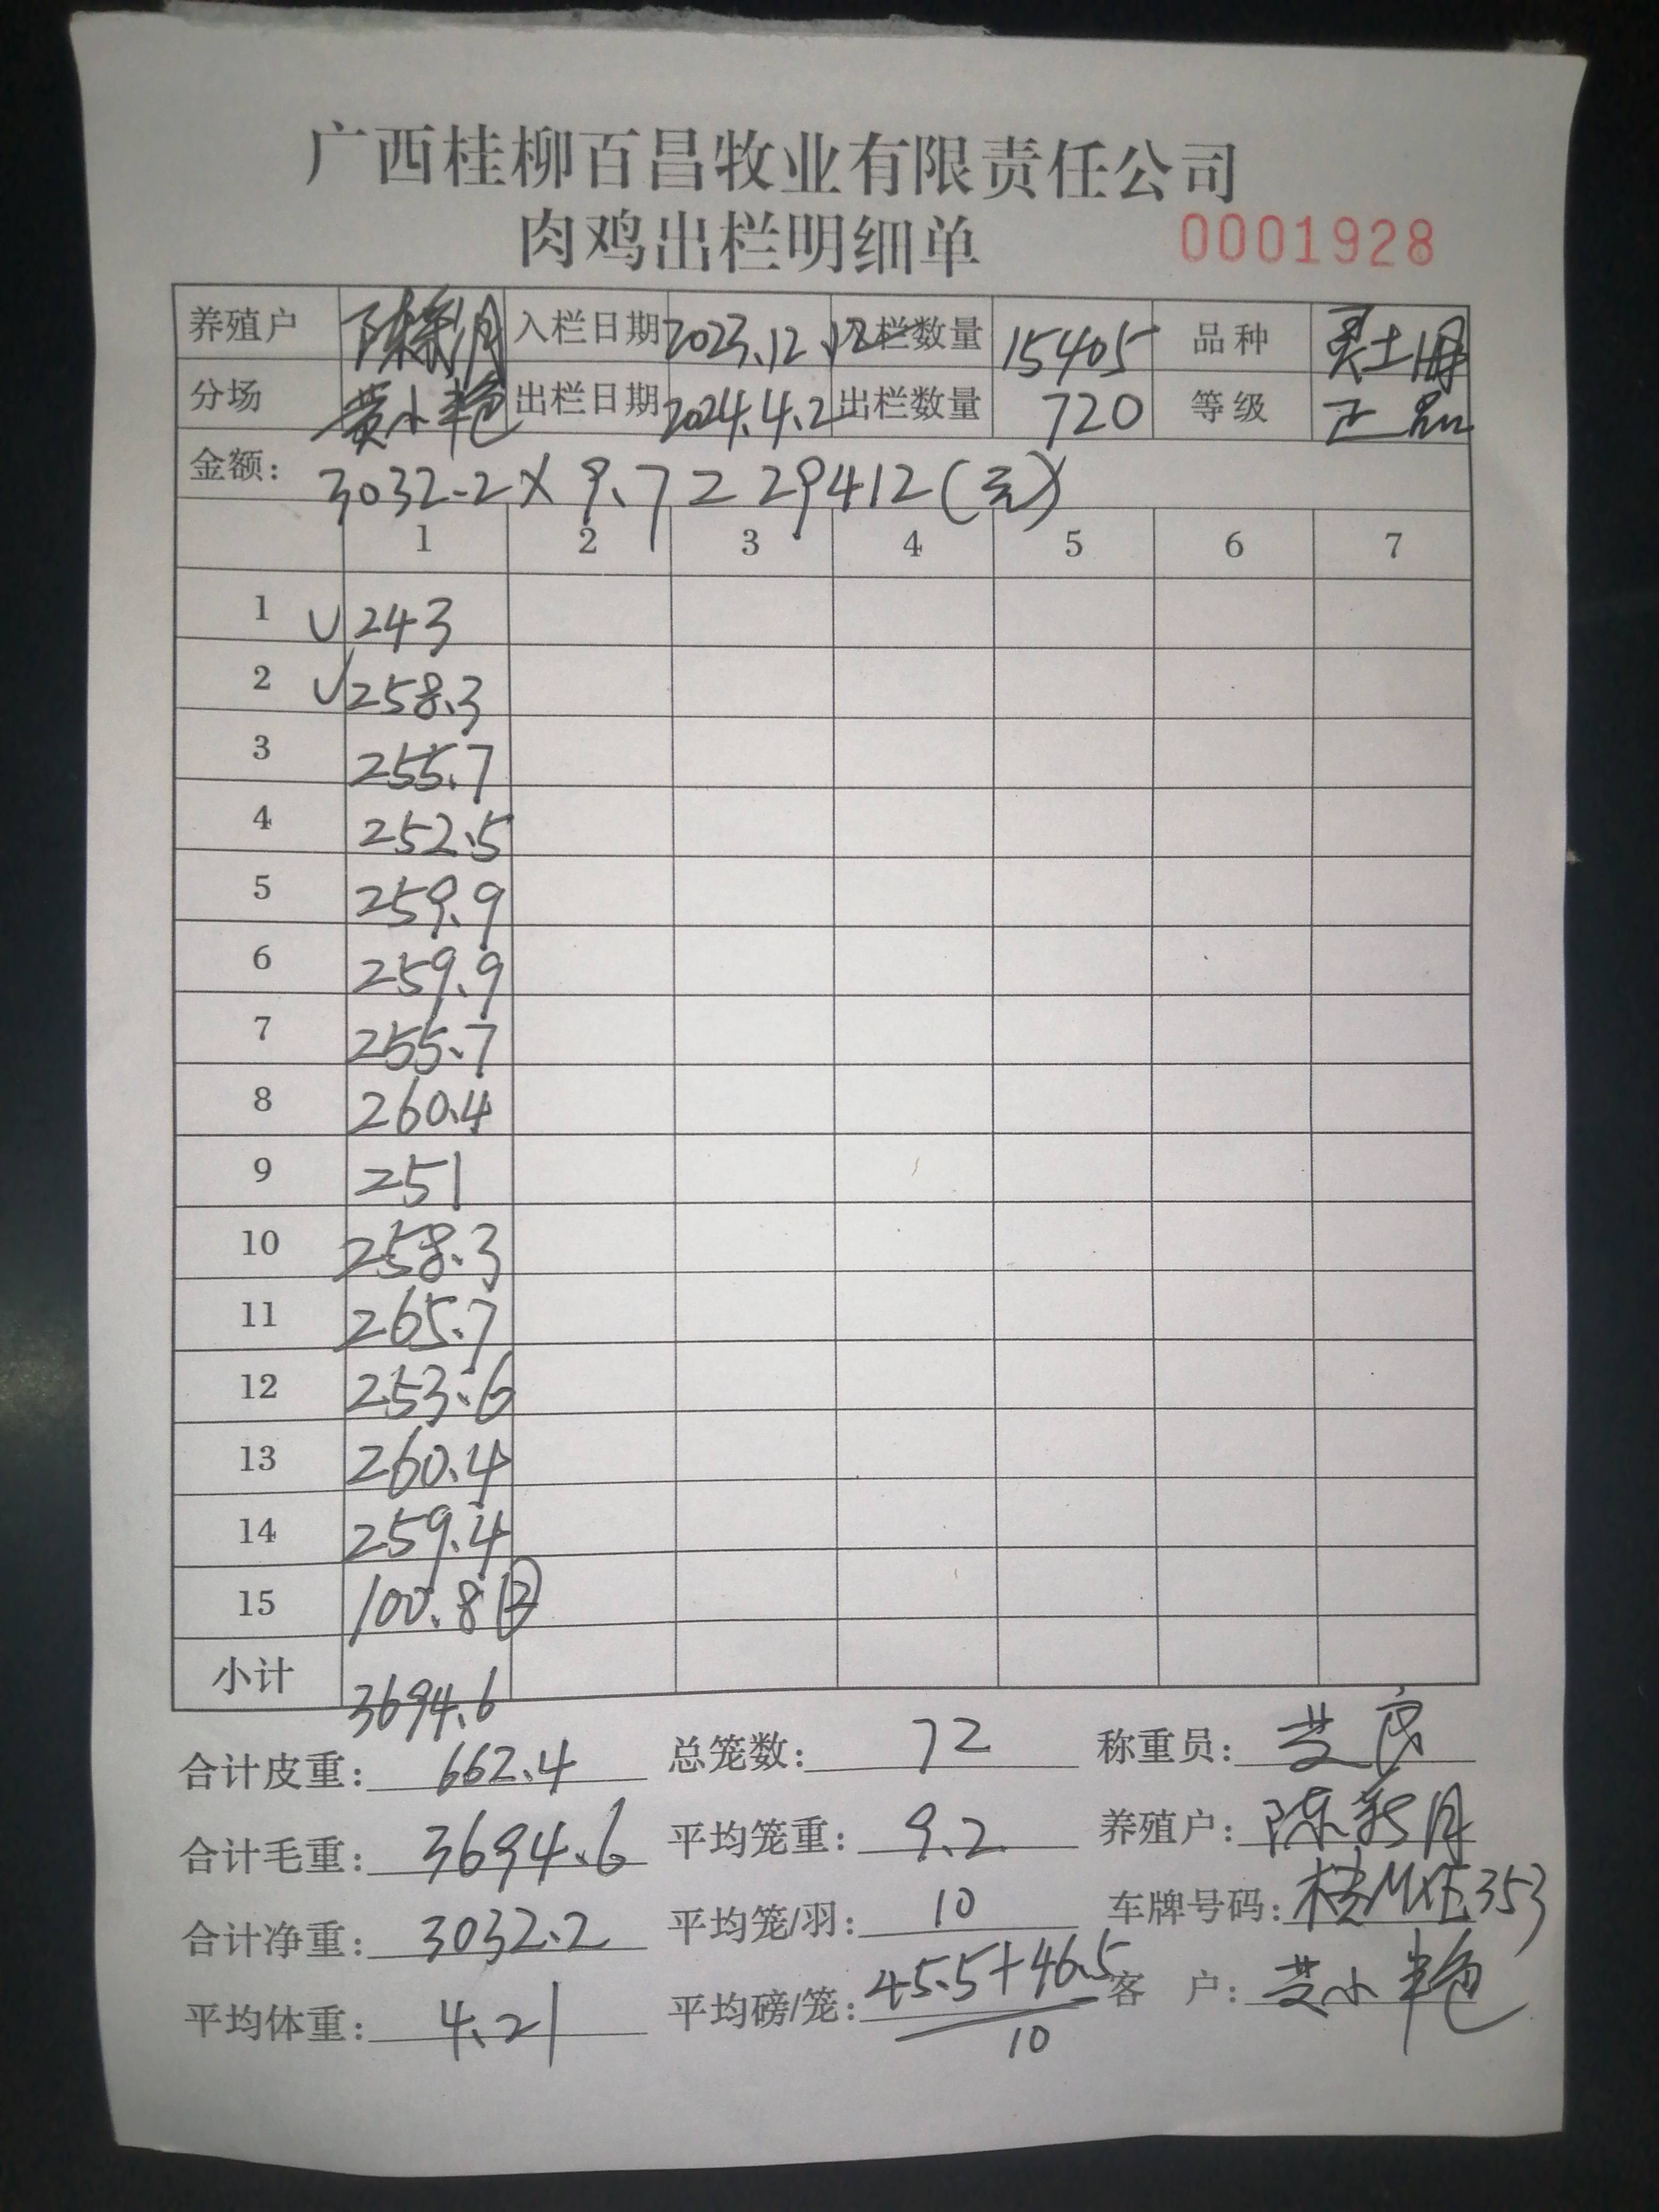 广西桂柳百昌牧业有限责任公司
肉鸡出栏明细单 0001928
养殖户 入栏日期 2023.12.12 入栏数量 15405 品种
分场 黄小艳 出栏日期 2024.4.2 出栏数量 720 等级 正品
金额: 3032.2×9.7=29412(元)
1 2 3 4 5 6 7
1 243
2 258.3
3 255.7
4 252.5
5 259.9
6 259.9
7 255.7
8 260.4
9 251
10 258.3
11 265.7
12 253.6
13 260.4
14 259.4
15 100.8 ②
小计 3694.6
合计皮重: 662.4 总笼数: 72 称重员:
合计毛重: 3694.6 平均笼重: 9.2 养殖户: 陈彩月
合计净重: 3032.2 平均笼/羽: 10 车牌号码:
平均体重: 4.21 平均磅/笼: 45.5+46.5 客 户: 黄小艳
10